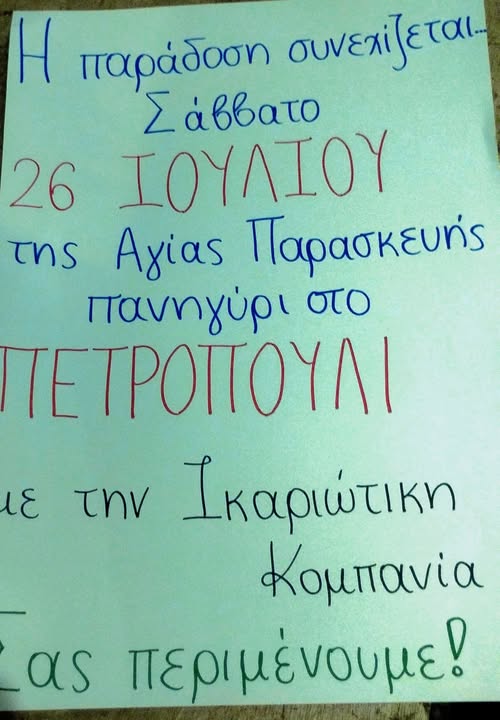 Η παράδοση συνεχίζεται...
Σάββατο
26 ΙΟΥΛΙΟΥ
της Αγίας Παρασκευής
πανηγύρι στο
ΠΕΤΡΟΠΟΥΛΙ
με την Ικαριώτικη
Κομπανία
Σας περιμένουμε!